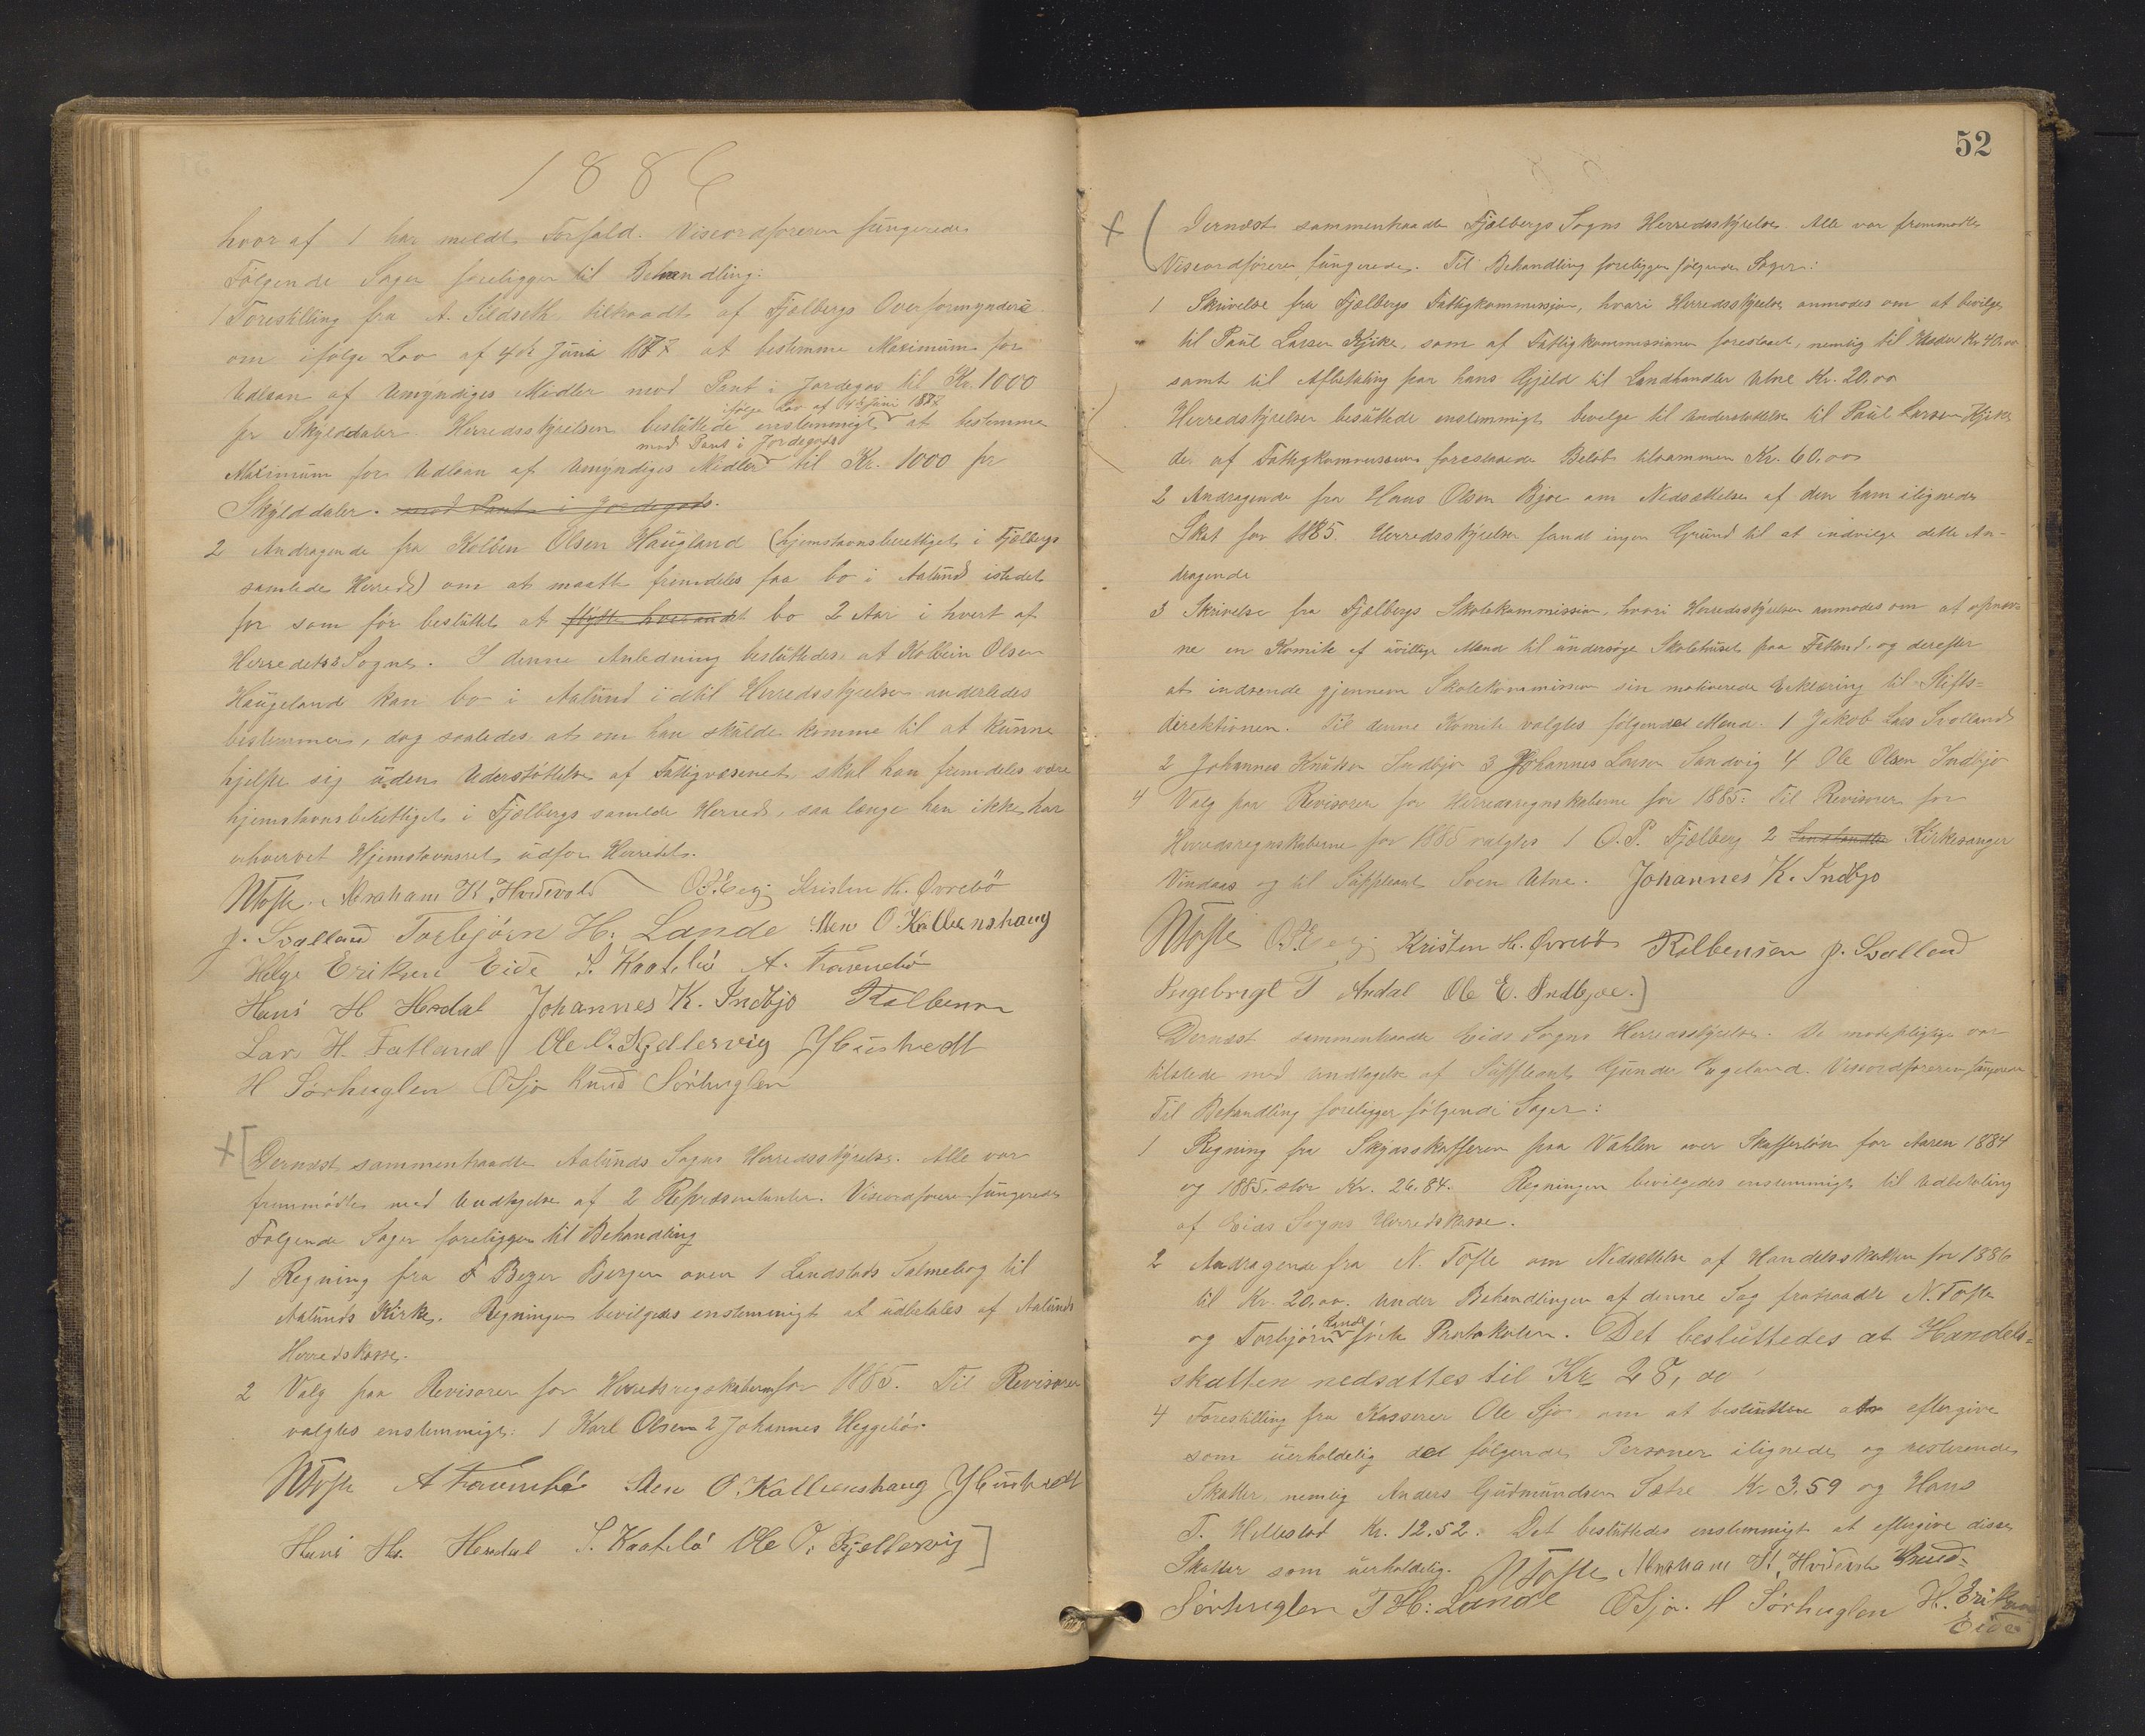 1886
hvor af 1 har meldt Forfald. Viseordføreren fungerede
Følgende Sager foreligger til Behandling:
1 Forestilling fra A. Sildseth tilraadt af Fjelbergs Overformynderi
om ifølge Lov af 4de Juni 1887 at bestemme Maximum for
Udlaan af Umyndiges Midler mod Pant i Jordegods til Kr. 1000
pr Skylddaler. Herredsstyrelsen besluttede enstemmigt ifølge Lov af 4de Juni 1887 at bestemme
Maximum for Udlaan af Umyndiges Midler mod Pant i Jordegods til Kr. 1000 pr
Skylddaler. mod Pant i Jordegods.
2 Andragende fra Kolbein Olsen Haugland (hjemstavnsberettiget i Fjelbergs
samlede Herred) om at maatte fremdeles faa bo i Aalund istedet
for som før besluttet at flytte bo 2 Aar i hvert af
Herredets Sogne. I denne Anledning besluttedes at Kolbein Olsen
Haugeland kan bo i Aalund idtil Herredsstyrelsen anderledes
bestemmer, dog saaledes at om han skulde komme til at kunne
hjelpe sig uden Understøttelse af Fattigvæsenet skal han fremdeles være
hjemstavnsberettiget i Fjelbergs samlede Herred, saa længe han ikke har
erhvervet Hjemstavnsret udfor Herredet.
NTofte Abraham K. Hvidevold O.P. Eeg Kristen H. Øvrebö
J. Svalland Torbjørn H. Lande Sten O. Kalbenshaug
Helge Eriksen Eide S. Kaatebö A. Travnebö
Hans H Herdal Johannes K. Indbjo Kolbensen
Lars H. Fatland Ole O. Kjellesvig
H Sørhuglen OSjo Knud Sørhuglen
Dernæst sammentraadte Aalunds Sogns Herredsstyrelse. Alle var
fremmødte med Undtagelse af 2 Repræsentanter. Viseordfører fungerede
Følgende Sager foreligger til Behandling
1 Regning fra F Beyer Bergen over 1 Landstads Salmebog til
Aalunds Kirke. Regningen bevilgedes enstemmigt at udbetales af Aalunds
Herredskasse.
2 Valg paa Revisorer for Herredsregnskaberne for 1885. Til Revisorer
valgtes enstemmigt: 1 Karl Olsen 2 Johannes Heggebö.
NTofte A Travnebö Sten O. Kalbenshaug
Hans H. Herdal S. Kaatebö Ole O. Kjellesvig
52
Dernæst sammentraadte Fjelbergs Sogns Herredsstyrelse. Alle var fremmødte
Viseordfører fungerede. Til Behandling foreligger følgende Sager:
1 Skrivelse fra Fjelbergs Fattigkommission, hvori Herredsstyrelsen anmodes om at bevilge
til Paul Larsen Kjike, som af Fattigkommissionen foreslaaet, nemlig til Klæder Kr. 40,00
samt til Afbetaling paa hans Gjeld til Landhandler Utne Kr. 20,00
Herredsstyrelsen besluttede enstemmigt bevilge til Understøttelse til Paul Larsen Kjike
de af Fattigkommissionen foreslaaede Beløb tilsammen Kr. 60,00
2 Andragende fra Hans Olsen Bjoe om Nedsættelse af den ham ilignede
Skat for 1885. Herredsstyrelsen fandt ingen Grund til at indvilge dette An-
dragende
3 Skrivelse fra Fjelbergs Skolekommission, hvori Herredsstyrelsen anmodes om at opnæv-
ne en Komite af uvillige Mænd til undersøge Skolehuset paa Fatland, og derefter
at indsende gjennem Skolekommission sin motiverede Erklæring til Stifts-
direktionen. Til denne Komite valgtes følgende Mænd. 1 Jakob Lars Svolland
2 Johannes Knudsen Indbjo 3 Johannes Larsen Sandvig 4 Ole Olsen Indbjo
4 Valg paa Revisorer for Herredsregnskaberne for 1885. Til Revisorer for
Herredsregnskaberne for 1885 valgtes 1 O. P. Fjelberg 2 Landhandler Kirkesanger
Vindaas og til Suppleant Sven Utne. Johannes K. Indbjo
NTofte O.P. Eeg Kristen H. Øvrebö Kolbensen J. Svalland
Ingebrigt T Ardal Ole E. Indbjoe.
Dernæst sammentraadte Eids Sogns Herredsstyrelse. De mødepligtige var
tilstede med Undtagelse af Suppleant Gunder Engeland. Viseordføreren fungerede
Til Behandling foreligger følgende Sager:
1 Regning fra Skydsskafferen paa Vahlen over Skafferløn for Aaren 1884
og 1885, stor Kr. 26.84. Regningen bevilgedes enstemmigt til Udbetaling
af Eids Sogns Herredskasse.
2 Andragende fra N. Tofte om Nedsættelse af Handelsskatten for 1886
til Kr. 20,00. Under Behandlingen af denne Sag fratraadte N. Tofte
og Torbjørn Lande førte Protokolen. Det besluttedes at Handels-
skatten nedsattes til Kr 28,00
4 Forestilling fra Kasserer Ole Sjo om at besluttene at eftergive
som uerholdelig det følgende Personer ilignede og resterende
Skatter, nemlig Anders Gudmundsen Sætre Kr 3.59 og Hans
T. Hellestad Kr. 12.52. Det besluttedes enstemmigt at eftergive disse
Skatter som uerholdelig. NTofte Abraham K. Hvidevold Knud
Sørhuglen T H. Lande OSjo. H Sørhuglen H. Eriksen
Eide